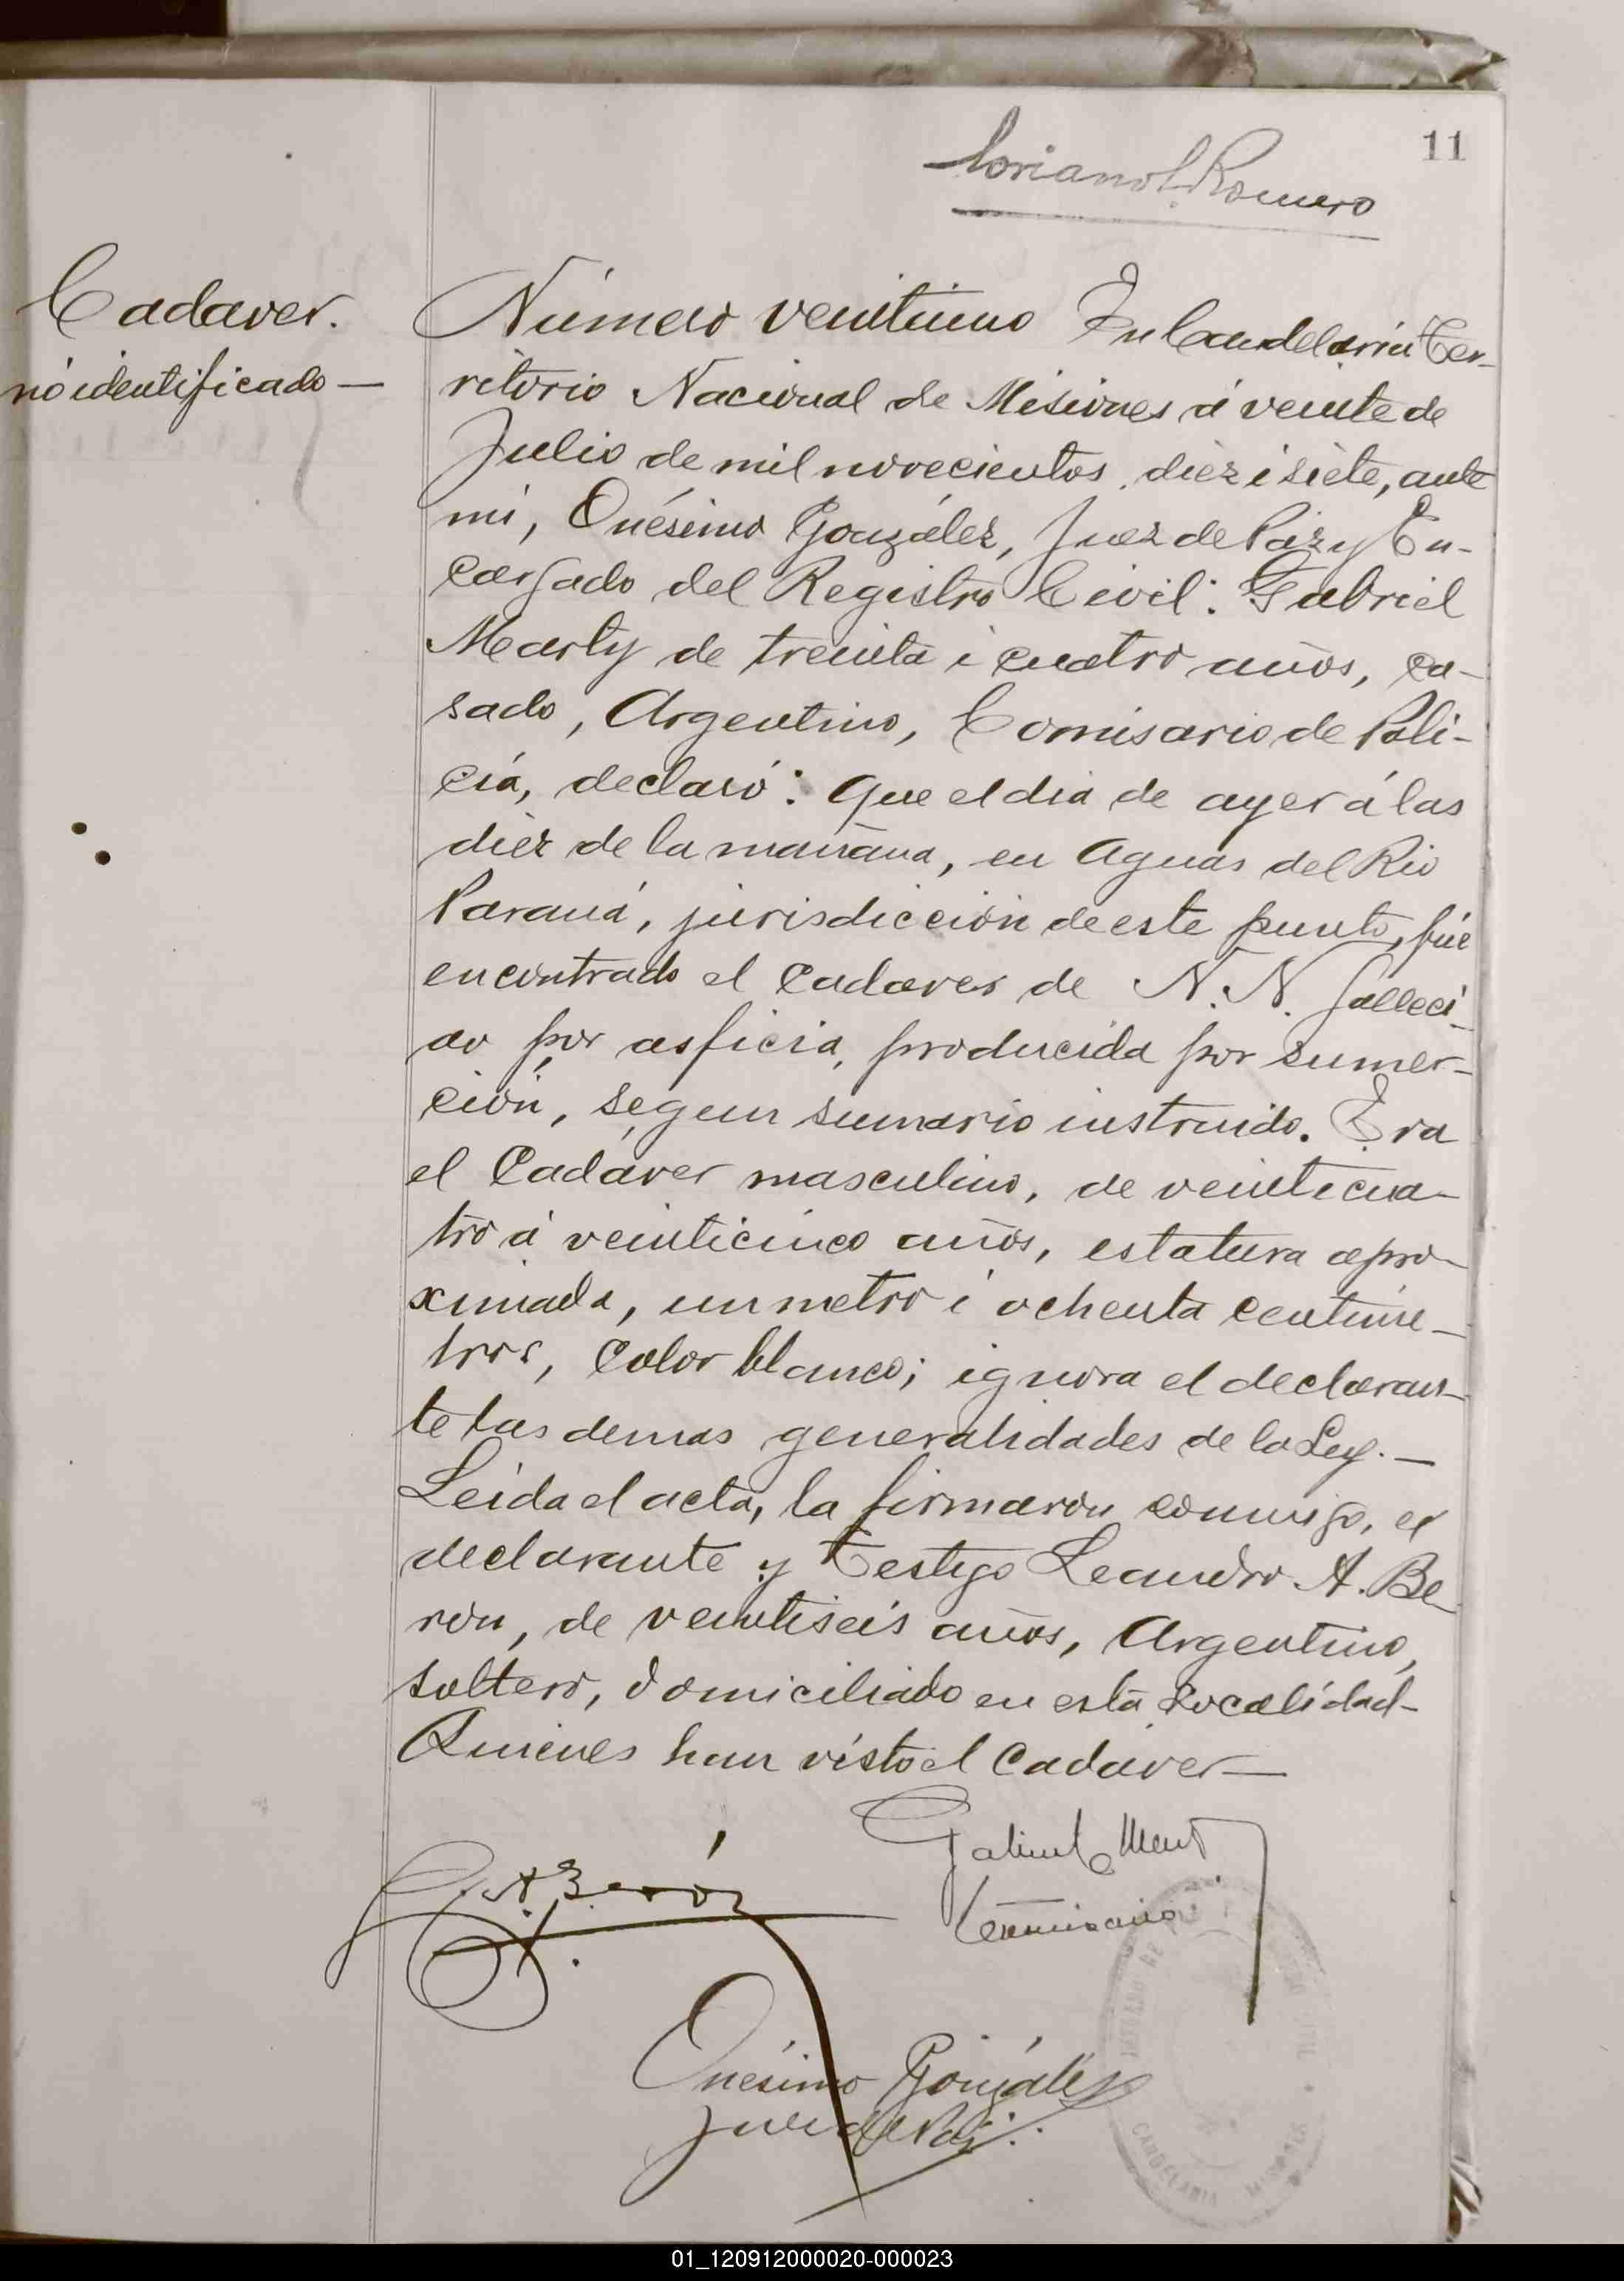 11
Romero
Cadaver.
nó identificado —
Número veintiuno En Candelaria Ter-
ritorio Nacional de Misiones á veinte de
Julio de mil novecientos diez i siete, ante
mi, Onésimo González, Juez de Paz y En-
cargado del Registro Civil: Gabriel
Marty de treinta i cuatro años, ca-
sado, Argentino, Comisario de Poli-
cía, declaró: Que el dia de ayer á las
diez de la mañana, en aguas del Rio
Paraná, jurisdicción de este punto, fué
encontrado el cadaver de N. N. falleci-
do por asficia, producida por sumer-
ción, segun sumario instruido. Era
el Cadáver masculino, de veinticua-
tro á veinticinco años, estatura apro-
ximada, un metro i ochenta centime-
tros, color blanco; ignora el declaran-
te las demas generalidades de la Ley. —
Leida el acta, la firmaron conmigo, el
declarante y Testigo Leandro A. Be
ron, de veintiseis años, Argentino,
soltero, domiciliado en esta Localidad-
Quienes han visto el Cadáver —
Gabriel Mart
L. A. Berón
Comisario
Onésimo González
Juez de Paz.
JUZGADO DE PAZ
CANDELARIA MISIONES
01_120912000020-000023